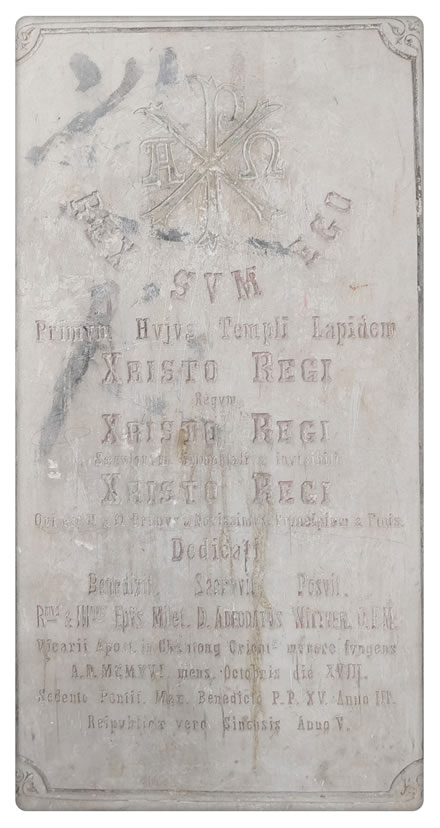 Α Ω
REX SVM EGO
Primum Hujus Templi Lapidem
XRISTO REGI
Regum
XRISTO REGI
Sæculorum Immortali & Invisibili
XRISTO REGI
Qui est Α & Ω Primus & Novissimus Principium & Finis.
Dedicati
Benedixit. Sacravit. Posvit.
R͟ᵐᵘˢ & Illᵐᵘˢ Epūs Milet. D. ADEODATUS WITTNER. O.F.M.
Vicarii Apost. is Chantong Orient. munere fungens
A.D. MCMXVI. mens. Octobris die XVIII.
Sedente Pontif. Max. Benedicto P.P. XV. Anno III.
Reipublicæ vero Sinensis Anno V.